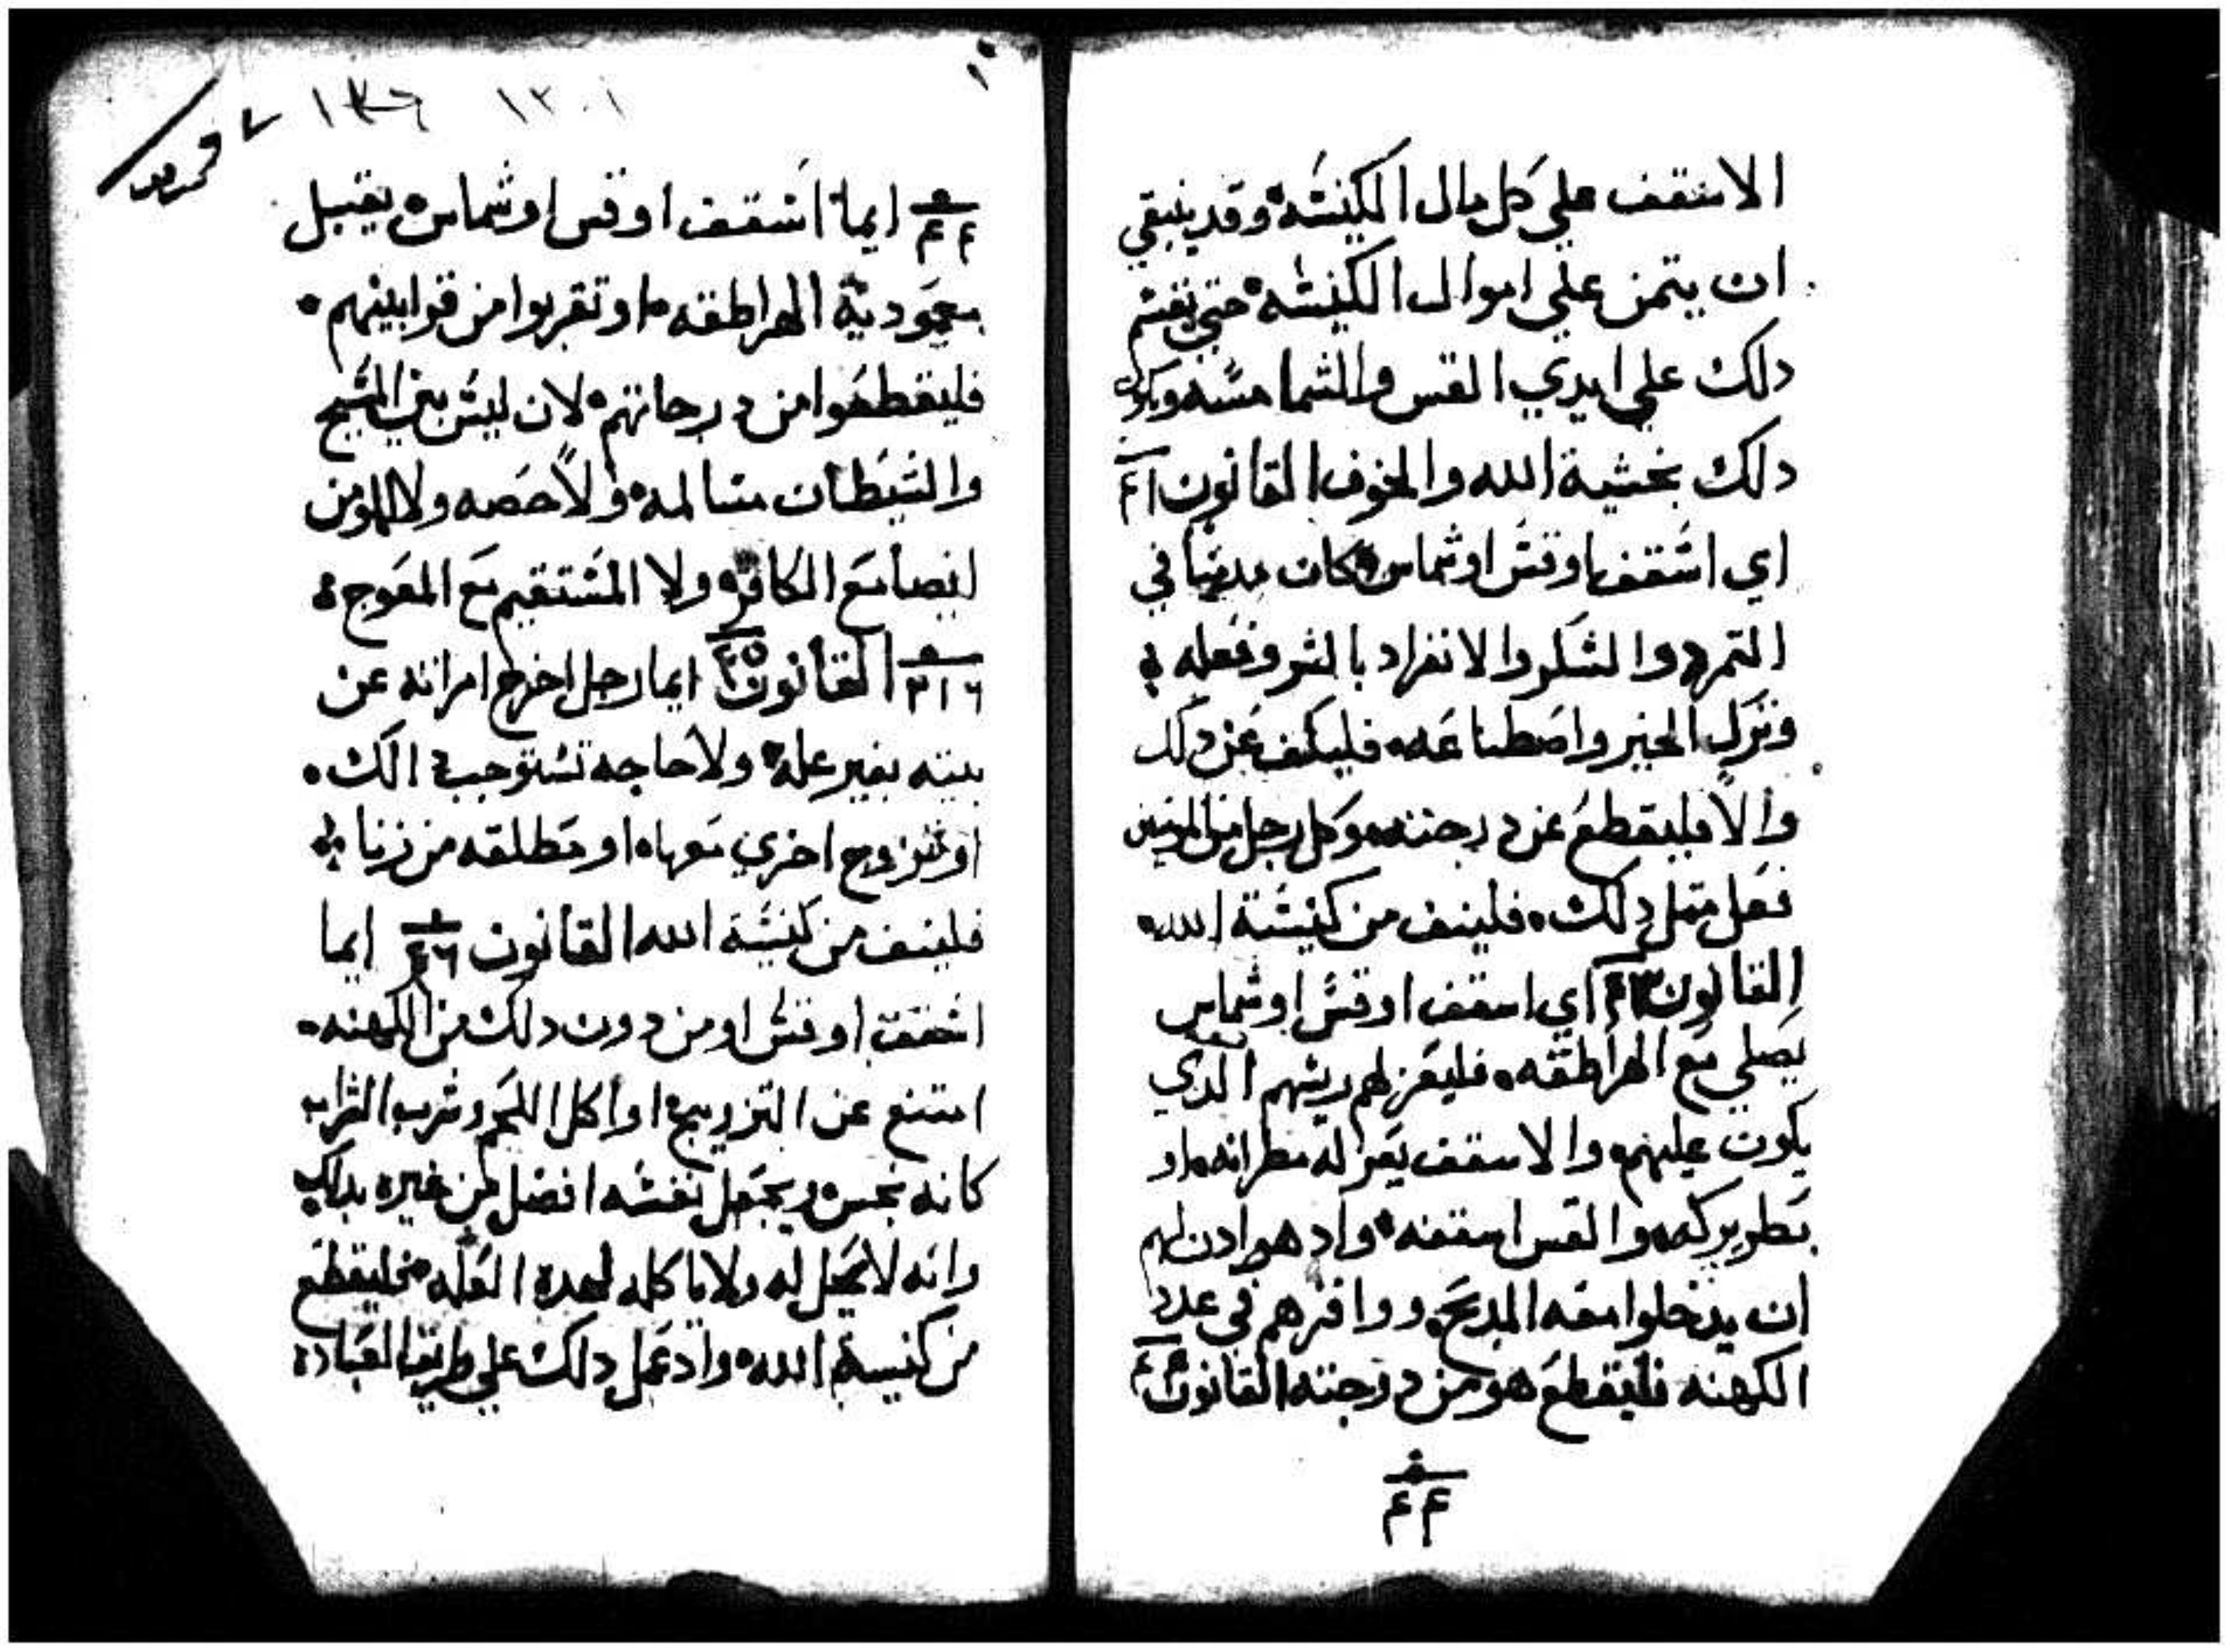 الاسقف علي كل مال الكنيسه وقد ينبقي
ان يتمن علي اموال الكنيسه حتي تقسم
دلك علي ايدي القس والشمامسه ويكون
دلك بخشية الله والخوف القانون
اي اسقف اوقس اوشماس كان مدمنا في
التمرد والسكر والانفراد بالشر وفعله
وترك الخير واصطناعه فليكف عن دلك
والا فليقطع عن درجته وكل رجل من المومنين
فعل متل دلك فلينف من كنيسة الله
القانون ٤٣ اي اسقف اوقس اوشماس
يصلي مع الهراطقه فليعزلهم ريسهم الدي
يكون عليهم والاسقف يعزله مطرانه او
بطريركه والقس اسقفه واد هو ادن لهم
ان يدخلوا معه المدبح ووافزهم في عدد
الكهنه فليقطع هو من درجته القانون ٤٤
٤٤
١٠
١٣٠١
٤٤ ايما اسقف اوقس اوشماس يقبل
معمودية الهراطقه او تقربوا من قرابينهم
فليقطعوا من درجاتهم لان ليس بين المسيح
والشيطان مسالمه ولا حصه ولا للمومن
ايضا مع الكافر ولا المستقيم مع المعوج
٣١٦ القانون ٤٥ ايما رجل اخرج امراته عن
بيته بغير عله ولا حاجه تستوجب دالك
او تتزوج اخري معها او مطلقه من زنا
فلينف من كنيسة الله القانون ٤٦ ايما
اسقف اوقس اومن دون دلك من الكهنه
امتنع عن التزويج او اكل اللحم وشرب الشراب
كانه نجس ويجعل نفسه افضل من غيره بدلك
وانه لا يحل له ولا ياكله لهده العله فليقطع
من كنيسة الله واد عمل دلك علي طريق العباده